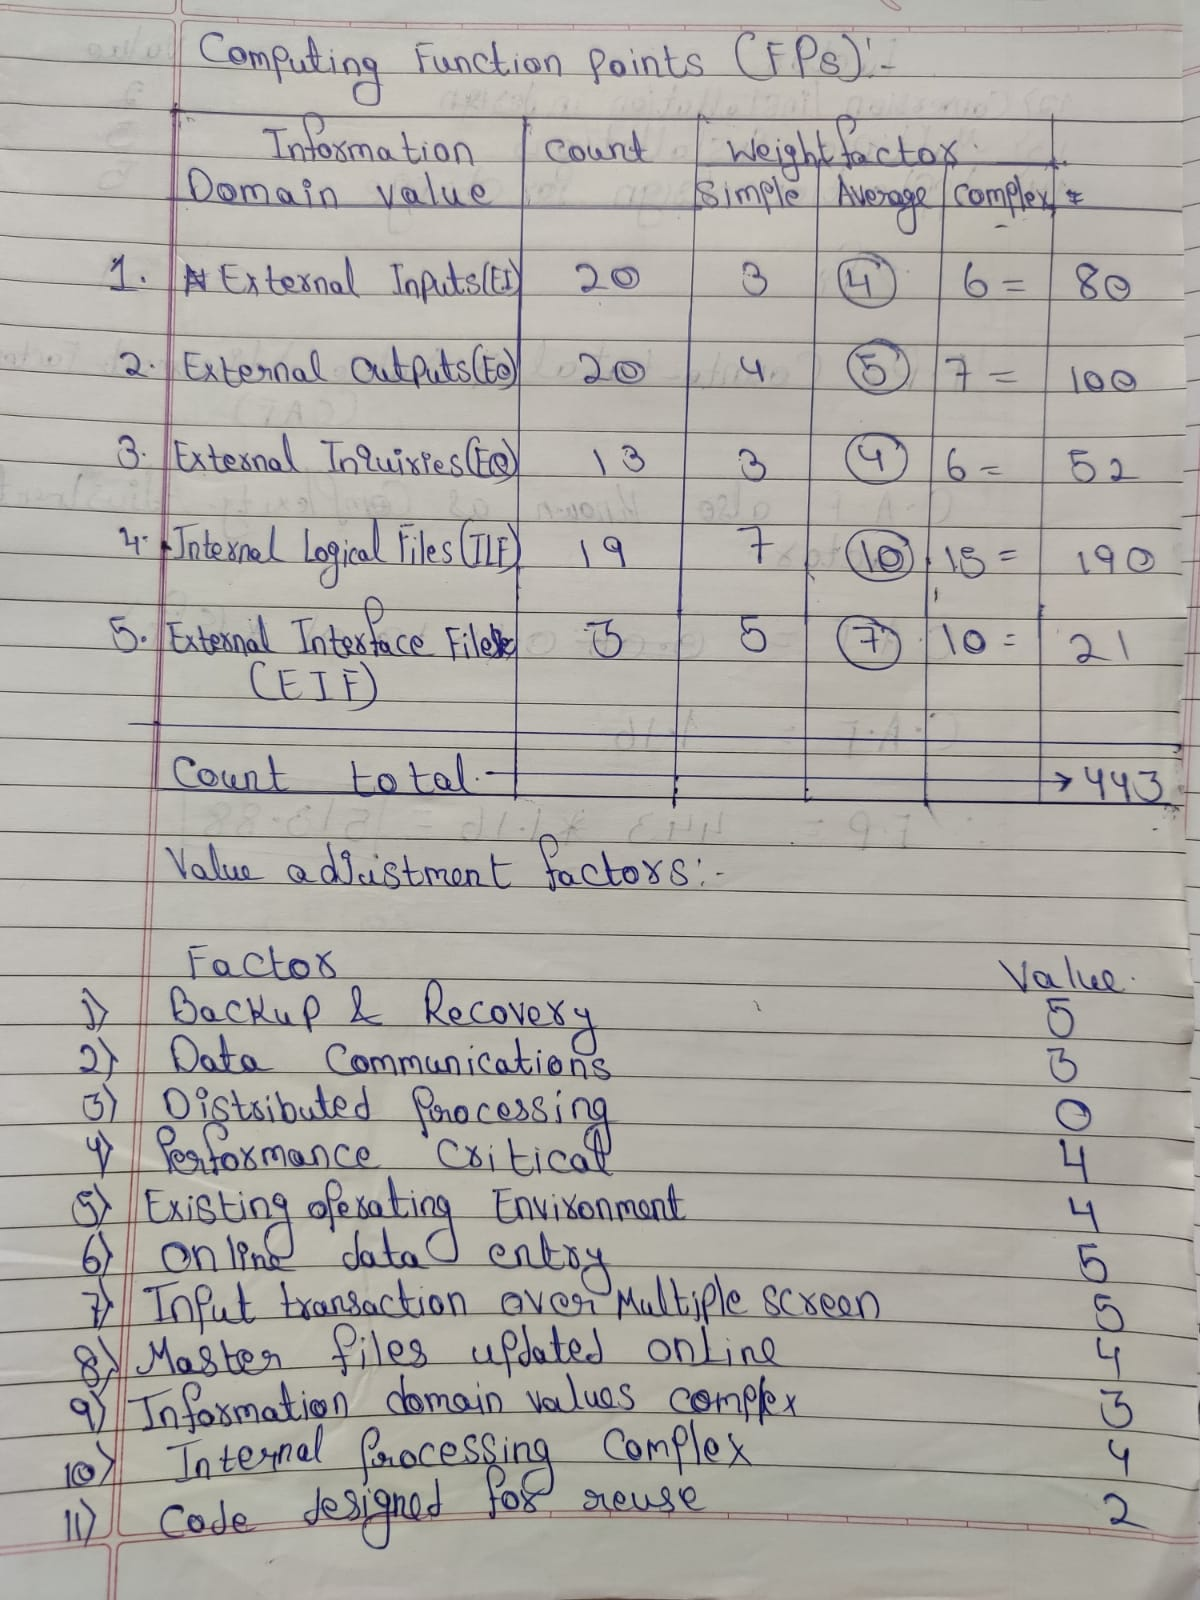 Computing Function points (FPs):-
Information Count Weight factor
Domain value Simple Average Complex
1. External Inputs(EI) 20 3 4 6 = 80
2. External Outputs(EO) 20 4 5 7 = 100
3. External Inquiries(EQ) 13 3 4 6 = 52
4. Internal Logical Files(ILF) 19 7 10 15 = 190
5. External Interface Files 3 5 7 10 = 21
(EIF)
Count total - → 443
Value adjustment factors:-
Factor Value.
1) Backup & Recovery 5
2) Data Communications 3
3) Distributed Processing 0
4) Performance Critical 4
5) Existing operating Environment 4
6) Online data entry 5
7) Input transaction over Multiple screen 5
8) Master files updated online 4
9) Information domain values complex 3
10) Internal processing Complex 4
11) Code designed for reuse 2